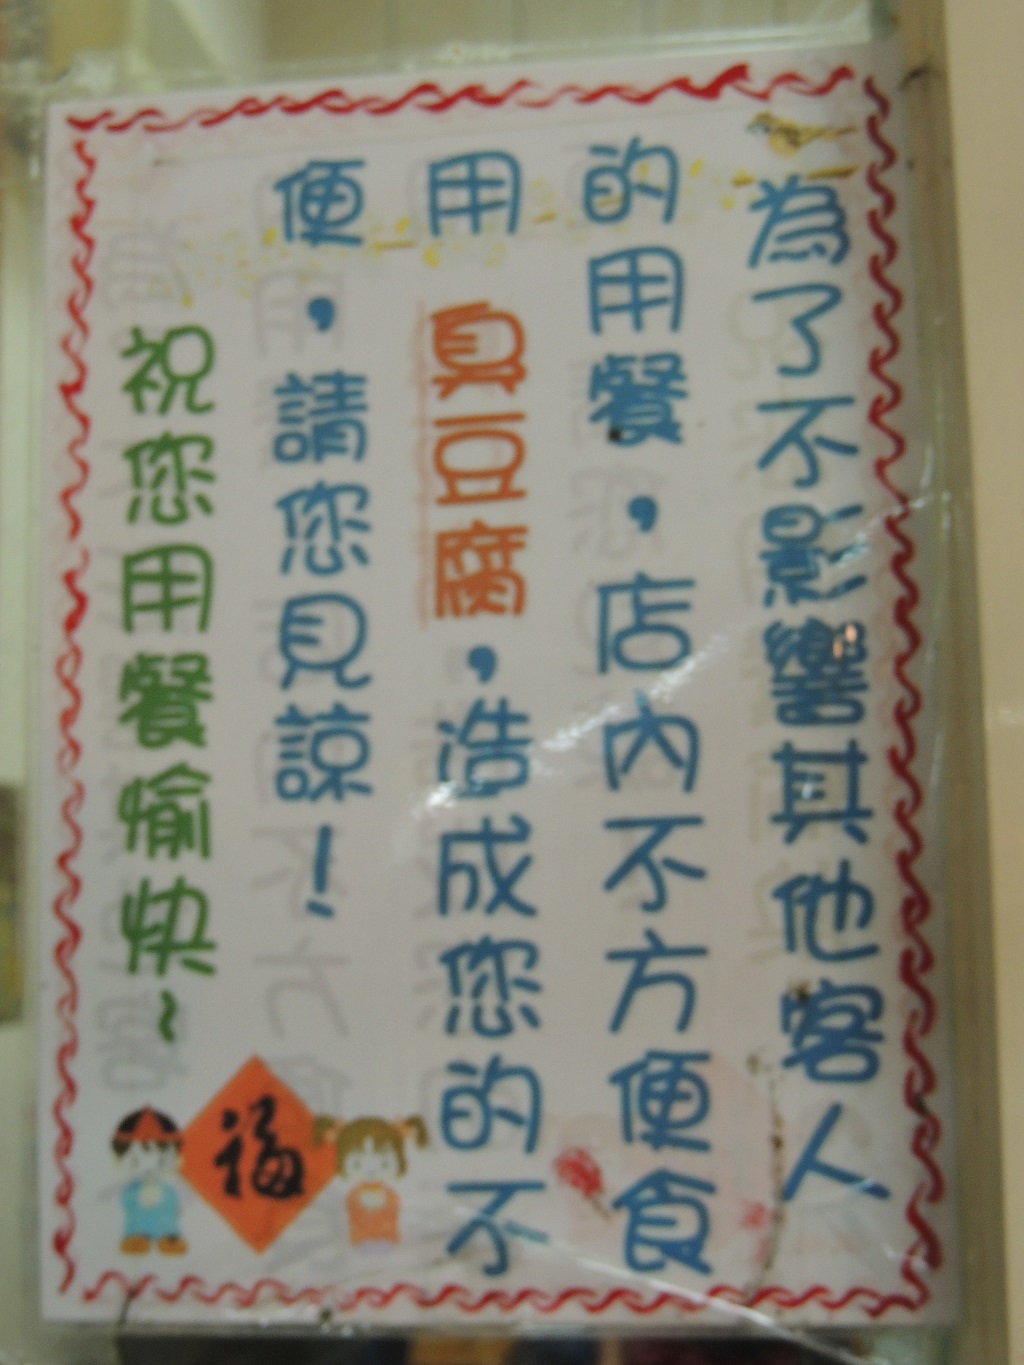 為了不影響其他客人
的用餐，店內不方便食
用臭豆腐，造成您的不
便，請您見諒！
祝您用餐愉快~
福